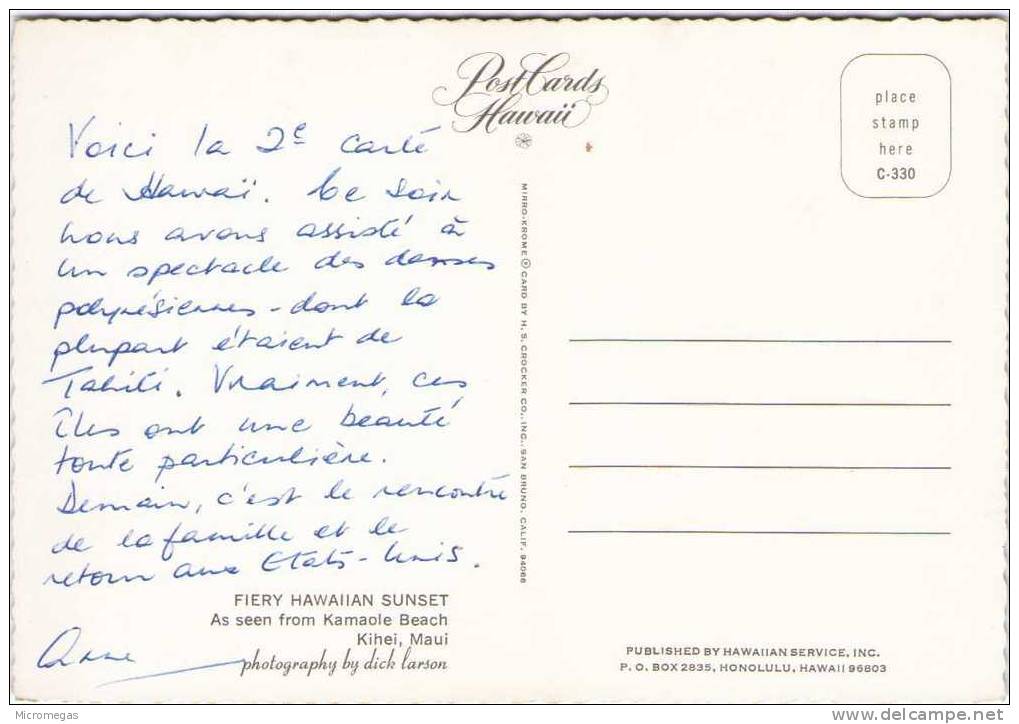 Post Cards
Hawaii
place
stamp
here
C-330
Voici la 2e carte
de Hawaï. Ce soir
nous avons assisté à
un spectacle des danses
polynésiennes - dont la
plupart étaient de
Tahiti. Vraiment, ces
îles ont une beauté
toute particulière.
Demain, c'est le rencontre
de la famille et le
retour aux Etats-Unis.
Anne
FIERY HAWAIIAN SUNSET
As seen from Kamaole Beach
Kihei, Maui
photography by dick larson
MIRRO-KROME ® CARD BY H. S. CROCKER CO., INC., SAN BRUNO, CALIF. 94066
PUBLISHED BY HAWAIIAN SERVICE, INC.
P. O. BOX 2835, HONOLULU, HAWAII 96803
Micromegas
delcampe.net